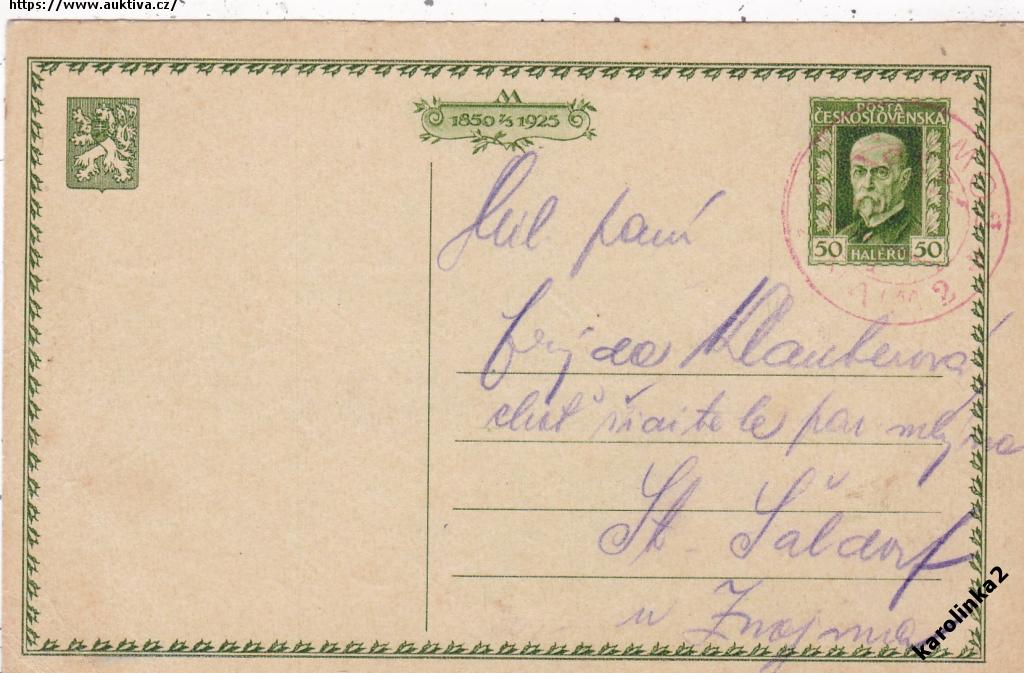 https://www.auktiva.cz/
M
1850 7/3 1925
POŠTA
ČESKOSLOVENSKÁ
50 HALÉŘŮ 50
Mil. paní
Frýda Klauberová
choť ředitele par mlýna
St. Šaldorf
u Znojma
karolinka2